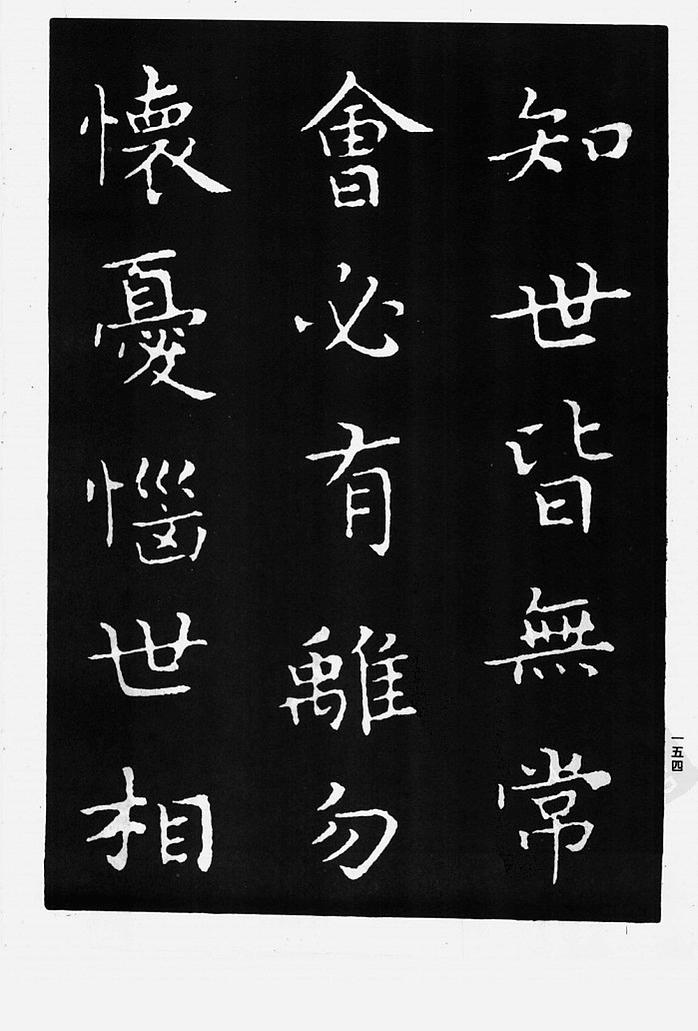 知世皆無常
會必有離勿
懷憂惱世相
一五四